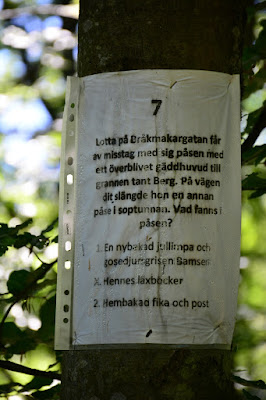 7
Lotta på Bråkmakargatan får
av misstag med sig påsen med
ett överblivet gäddhuvud till
grannen tant Berg. På vägen
dit slängde hon en annan
påse i soptunnan. Vad fanns i
påsen?
1. En nybakad jullimpa och
gosedjursgrisen Bamsen
X. Hennes läxböcker
2. Hembakad fika och post